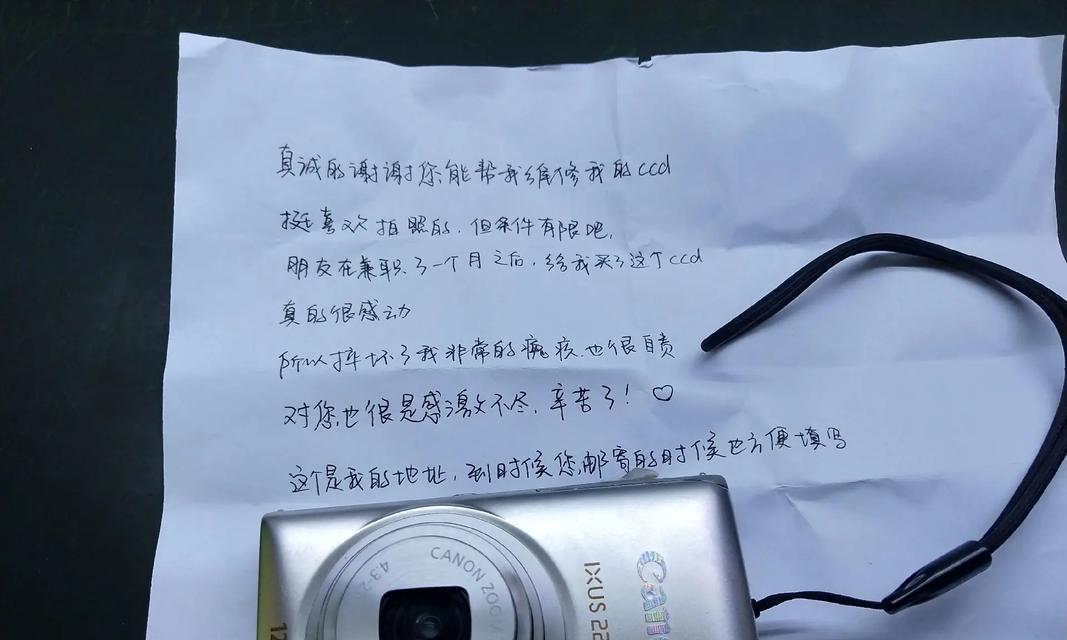 真诚的谢谢您能帮我维修我的ccd
挺喜欢拍照的，但条件有限吧，
朋友在兼职了一个月之后，给我买了这个ccd
真的很感动
所以摔坏了我非常的疚，也很自责
对您也很是感激不尽，辛苦了！♡
这个是我的地址，到时候您邮寄的时候也方便填写
CANON ZOO
4.3-2
IXUS 22
Can
12